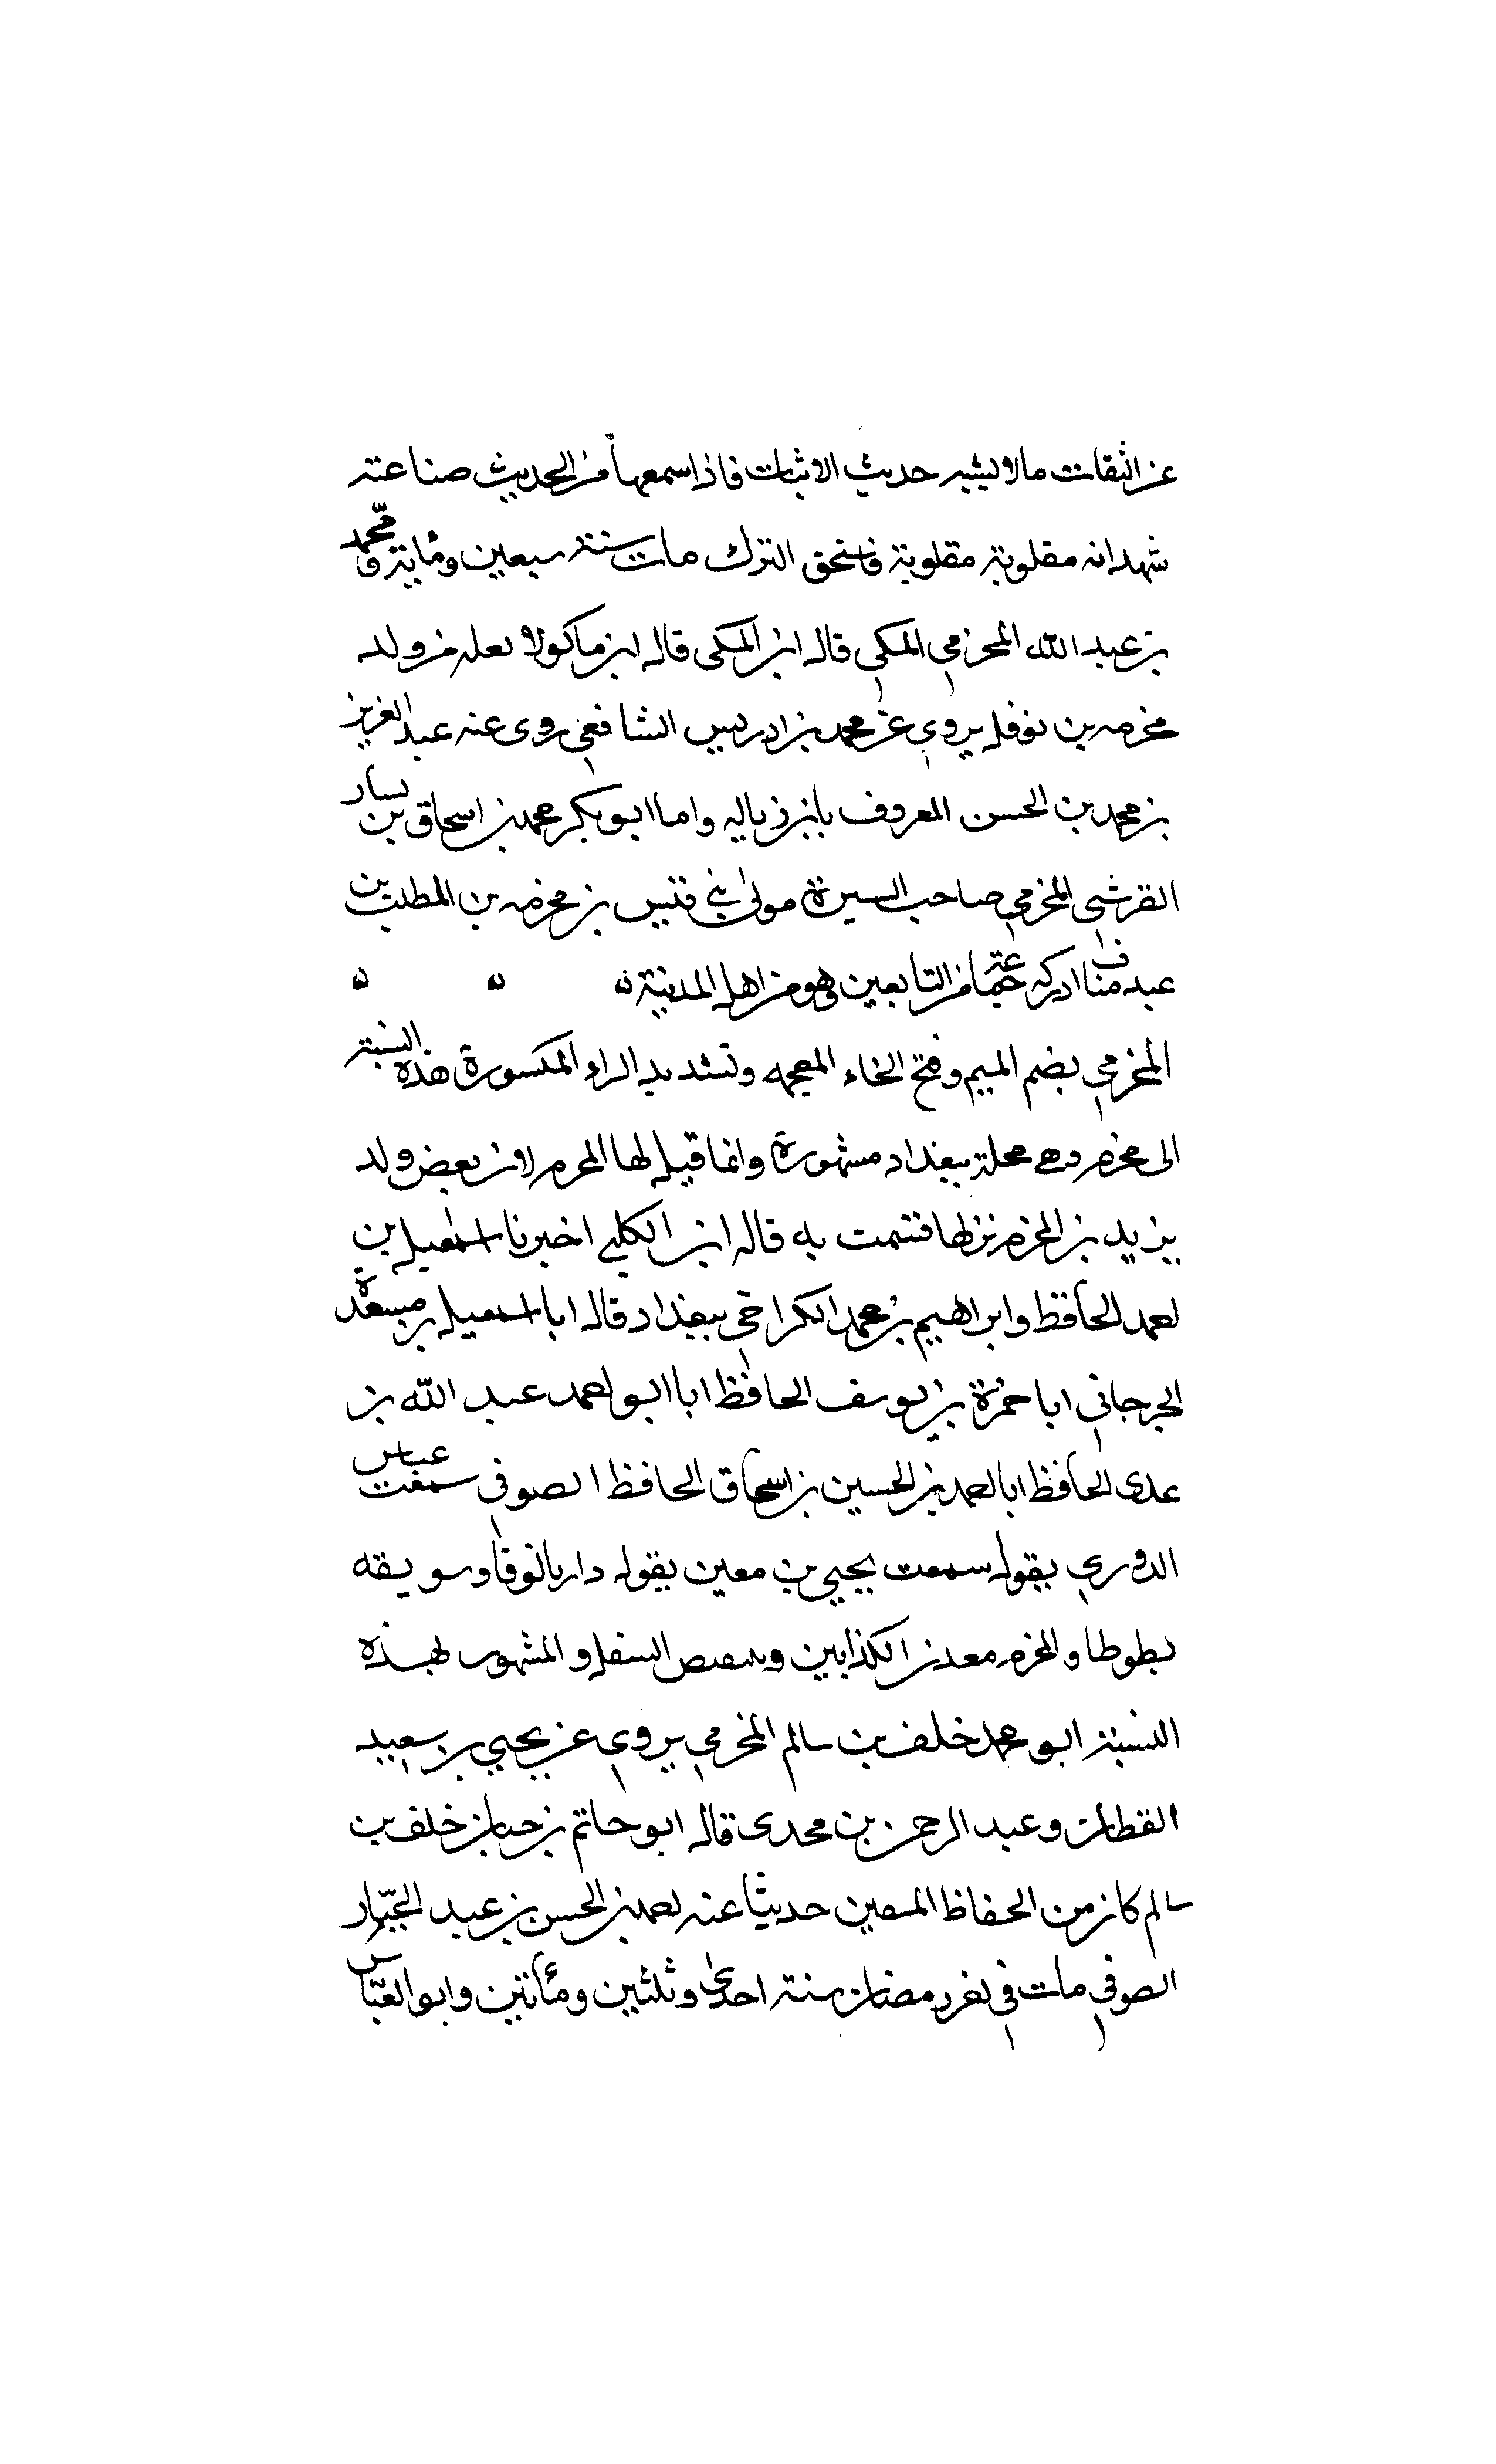 عن الثقات ما لا يشبه حديث الاثبات فاذا سمعها من الحديث صناعته
شهد انه مقلوبة مقلوبة فاستحق الترك مات سنة سبعين ومأية ومحمد
بن عبد الله المخرمي المكي قال ابن المكي قال ابن ماكولا لعله من ولد
مخرمه بن نوفل يروي عن محمد بن ادريس الشافعي روى عنه عبد العزيز
بن محمد بن الحسن المعروف بابن زباله واما ابو بكر محمد بن اسحاق بن يسار
القرشي المخرمي صاحب السيرة مولى بني قيس بن مخرمه بن المطلب بن
عبد مناف ادركه جماعة من التابعين وهو من اهل المدينة ٥ ٥ ٥
المخرمي بضم الميم وفتح الخاء المعجمه وتشديد الراء المكسورة هذه النسبة
الى مخرم وهي محلة ببغداد مشهورة وانما قيل لها المخرم لان بعض ولد
يزيد بن المخرم نزلها فسمت به قال ابن الكلبي اخبرنا اسمعيل بن
احمد الحافظ وابراهيم بن محمد الكراخي ببغداد قال ابا اسمعيل بن مسعدة
الجرجاني ابا حمزة بن يوسف الحافظ ابا ابو احمد عبد الله بن
عدى الحافظ ابا احمد بن الحسين بن اسحاق الحافظ الصوفي سمعت عباس
الدوري يقول سمعت يحيي بن معين يقول دار بانوقا وسويقه
بطوطا والمخرم معدن الكذابين السفل والمشهور بهذه
النسبة ابو محمد خلف بن سالم المخرمي يروي عن يحيي بن سعيد
القطان وعبد الرحمن بن محدى قال ابو حاتم بن حبان خلف بن
سالم كان من الحفاظ المتقين حديثا عنه احمد بن الحسن بن عبد الجبّار
الصوفي مات في اخر رمضان سنة احدى وثلثين ومأتين وابو العبّاس